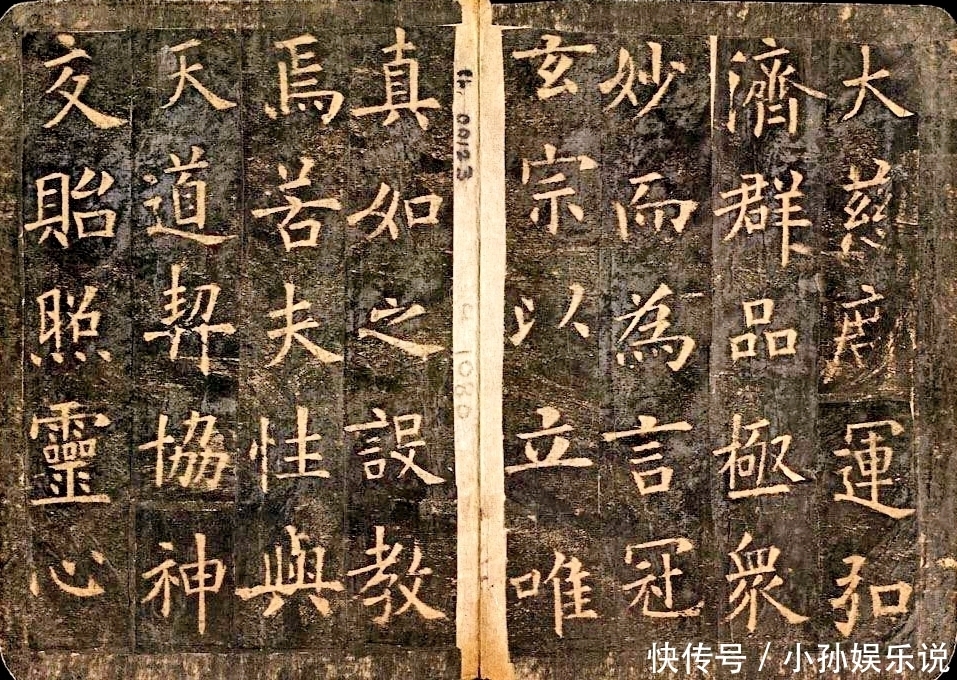 大慈運弘
濟群品極眾
妙而為言冠
玄宗以立唯
真如之設教
焉若夫性與
天道契協神
交貽照靈心
00123
1080
快传号 / 小孙娱乐说